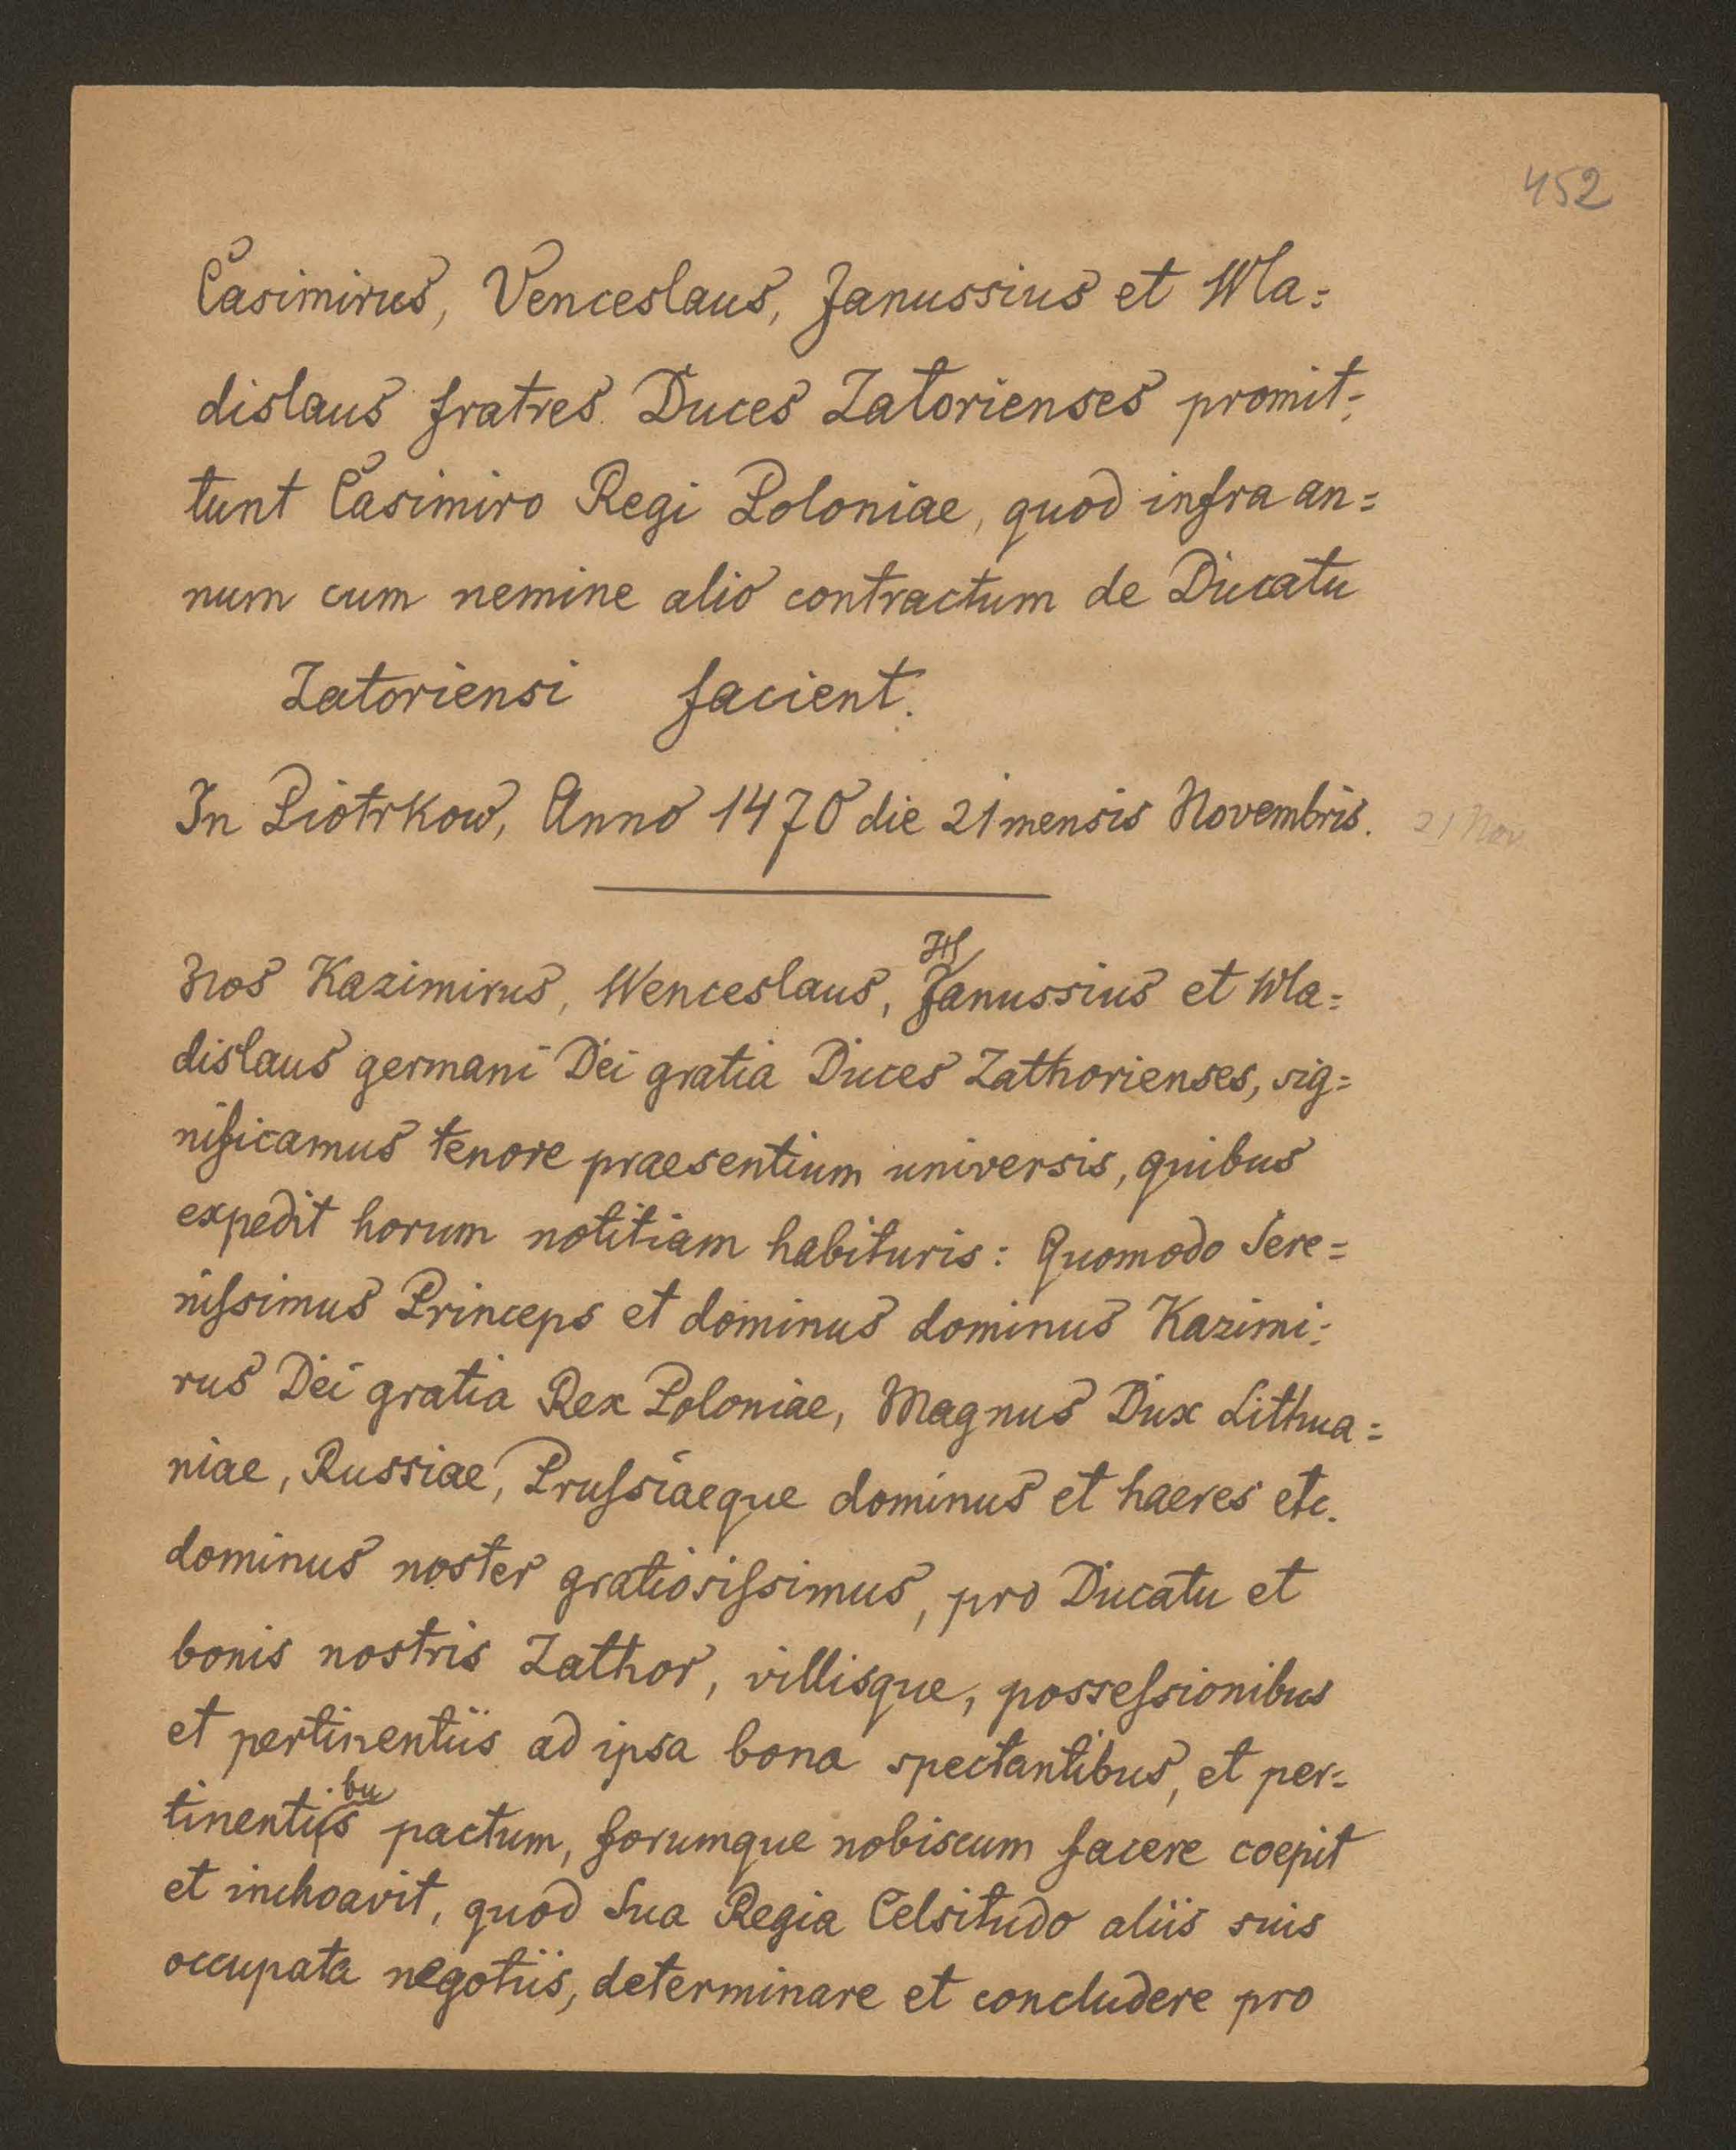 452
Casimirus, Venceslaus, Janussius et Wla=
dislaus fratres Duces Zatorienses promit=
tunt Casimiro Regi Poloniae, quod infra an=
num cum nemine alio contractum de Ducatu
Zatoriensi facient.
In Piotrkow, Anno 1470 die 21 mensis Novembris. 21 Nov.
Nos Kazimirus, Wenceslaus, Janussius et Wla=
dislaus germani Dei gratia Duces Zathorienses, sig=
nificamus tenore praesentium universis, quibus
expedit horum notitiam habituris: Quomodo Sere=
niſsimus Princeps et dominus dominus Kazimi=
rus Dei gratia Rex Poloniae, Magnus Dux Lithua=
niae, Russiae, Pruſsiaeque dominus et haeres etc.
dominus noster gratiosiſsimus, pro Ducatu et
bonis nostris Zathor, villisque, posseſsionibus
et pertinentiis ad ipsa bona spectantibus, et per=
bu
tinentiis pactum, forumque nobiscum facere coepit
et inchoavit, quod Sua Regia Celsitudo aliis suis
occupata negotiis, determinare et concludere pro